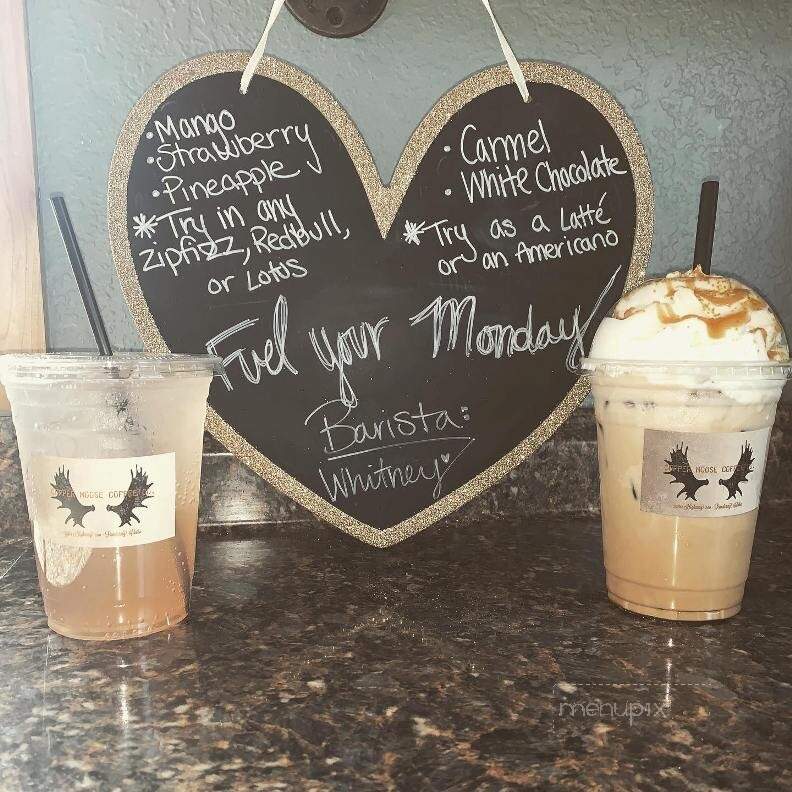 • Mango
• Strawberry
• Pineapple
* Try in any
zipfizz, Redbull,
or Lotus
• Carmel
• White Chocolate
* Try as a Latté
or an Americano
Fuel your Monday
Barista:
Whitney
MOOSE COFFEE
MOOSE COFFEE
menupix